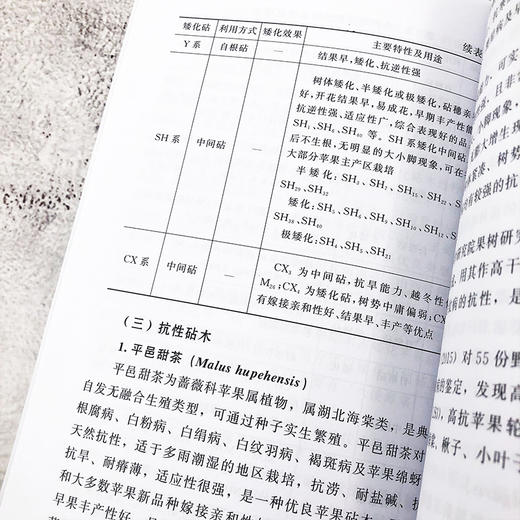 续表
矮化砧 利用方式 矮化效果 主要特性及用途
Y系 自根砧 — 结果早,矮化、抗逆性强
SH系 中间砧 —
树体矮化、半矮化或极矮化,砧穗亲
好,开花结果早,易成花,早期丰产性能
抗逆性强、适应性广,综合表现好的品
SH₁、SH₆、SH₄₀等。SH系矮化中间砧
后不生根,无明显的大小脚现象,可在
大部分苹果主产区栽培
半矮化:SH₃、SH₇、SH₁₅、SH₂₂、
SH₂₉、SH₃₂
矮化:SH₅、SH₆、SH₉、SH₁₀、SH₁₂、
SH₃₈、SH₄₀
极矮化:SH₄、SH₅、SH₂₁
CX系 中间砧 —
CX₃为中间砧,抗旱能力、越冬性
M₂₆;CX₄为矮化砧,树势中庸偏弱;CX
有嫁接亲和性好、结果早、丰产等优点
(三)抗性砧木
1. 平邑甜茶 (Malus hupehensis)
平邑甜茶为蔷薇科苹果属植物,属湖北海棠类,是典
自发无融合生殖类型,可通过种子实生繁殖。平邑甜茶对
根腐病、白粉病、白绢病、白纹羽病、褐斑病及苹果绵蚜
天然抗性,适于多雨潮湿的地区栽培,抗涝、耐盐碱、抗
抗旱、耐瘠薄,适应性很强,是一种优良苹果砧木
和大多数苹果新品种嫁接亲和性
早果丰产性好
可实
且非
小脚现象
大增生现
紧凑、树势
有较强的抗
研究院果树研究
用其作高干
病的抗性,是
2015)对55份野
病的鉴定,发现
高抗苹果轮
楸子、小叶